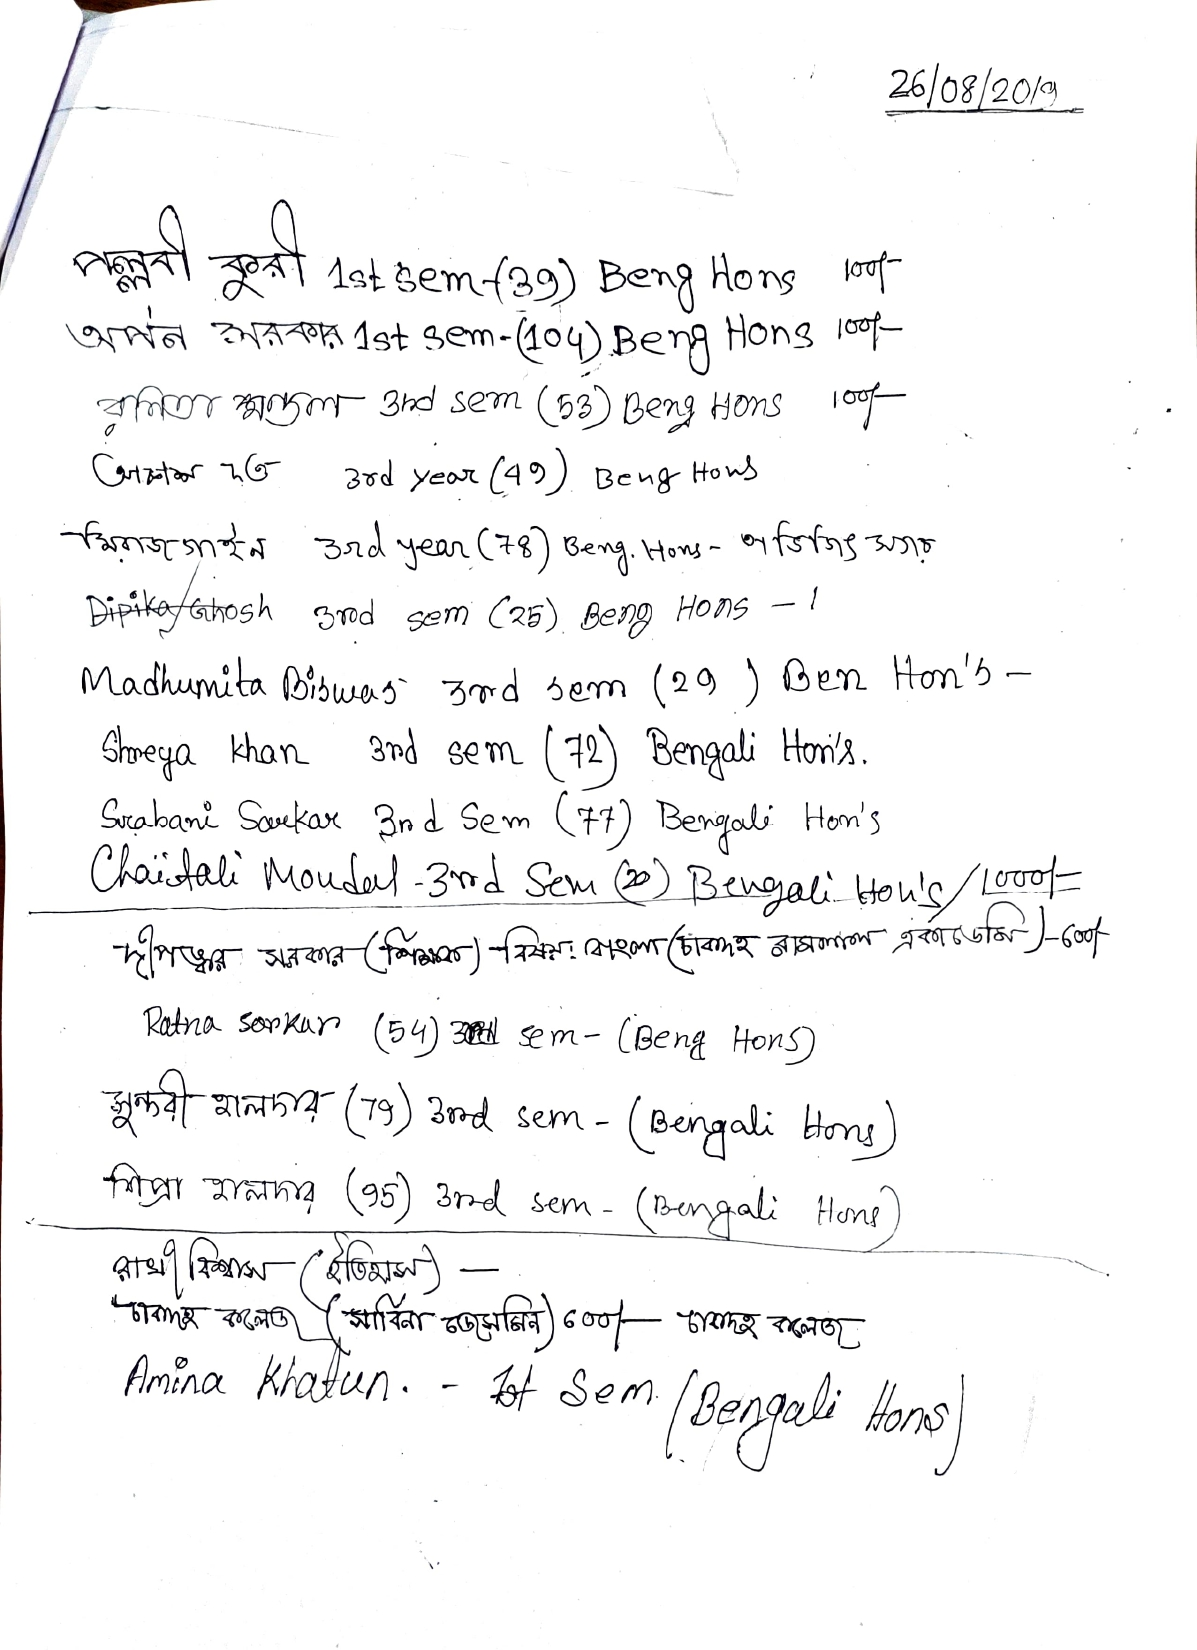 26/08/2019
পল্লবী কুরী 1st sem-(39) Beng Hons 100/-
অর্পন সরকার 1st sem-(104) Beng Hons 100/-
মন্ডল 3rd sem (53) Beng Hons 100/-
দত্ত 3rd year (49) Beng Hons
মিরাজ গাইন 3rd year (78) Beng. Hons -
Dipika Ghosh 3rd sem (25) Beng Hons - 1
Madhumita Biswas 3rd sem (29) Ben Hon's -
Shreya Khan 3rd sem (72) Bengali Hon's.
Srabani Sarkar 3rd Sem (77) Bengali Hon's
Chaitali Mondal - 3rd Sem (20) Bengali Hon's /1000/=
দীপঙ্কর সরকার (শিক্ষক) - বিষয়: বাংলা (চাকদহ রামলাল একাডেমি) - 600/-
Ratna Sarkar (54) 3rd sem - (Beng Hons)
সুন্দরী হালদার (79) 3rd sem - (Bengali Hons)
শিপ্রা হালদার (95) 3rd sem - (Bengali Hons)
রাখী বিশ্বাস (ইতিহাস) —
চাকদহ কলেজ (সাবিনা ইয়েসমিন) 600/- চাকদহ কলেজ
Amina Khatun. - 1st Sem. (Bengali Hons)